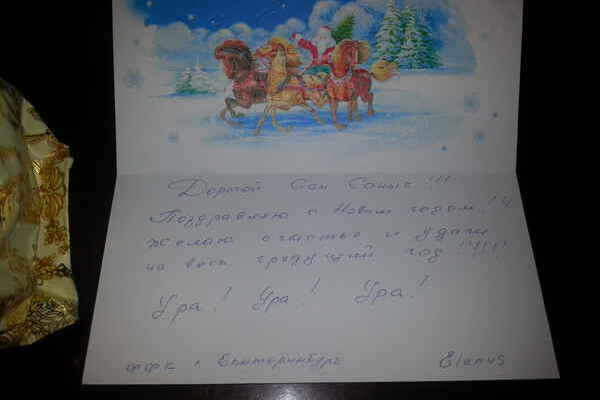 Дорогой Сан Саныч!!!
Поздравляю с Новым годом!!
Желаю счастья и удачи
на весь грядущий год!!!!!
Ура! Ура! Ура!
ФФК г. Екатеринбург Elanus